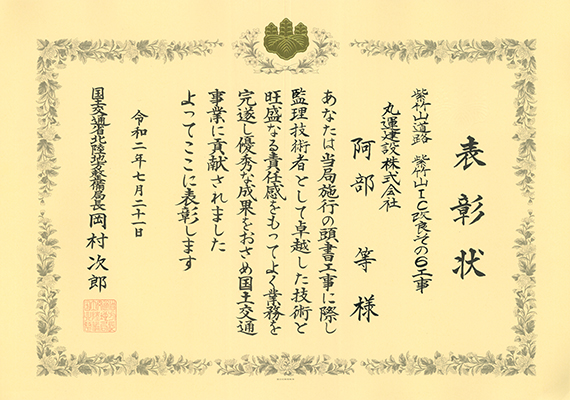 表彰状
紫竹山道路 紫竹山IC改良その6工事
丸運建設株式会社
阿部 等 様
あなたは当局施行の頭書工事に際し
監理技術者として卓越した技術と
旺盛なる責任感をもってよく業務を
完遂し優秀な成果をおさめ国土交通
事業に貢献されました
よってここに表彰します
令和二年七月二十一日
国土交通省北陸地方整備局長 岡村次郎